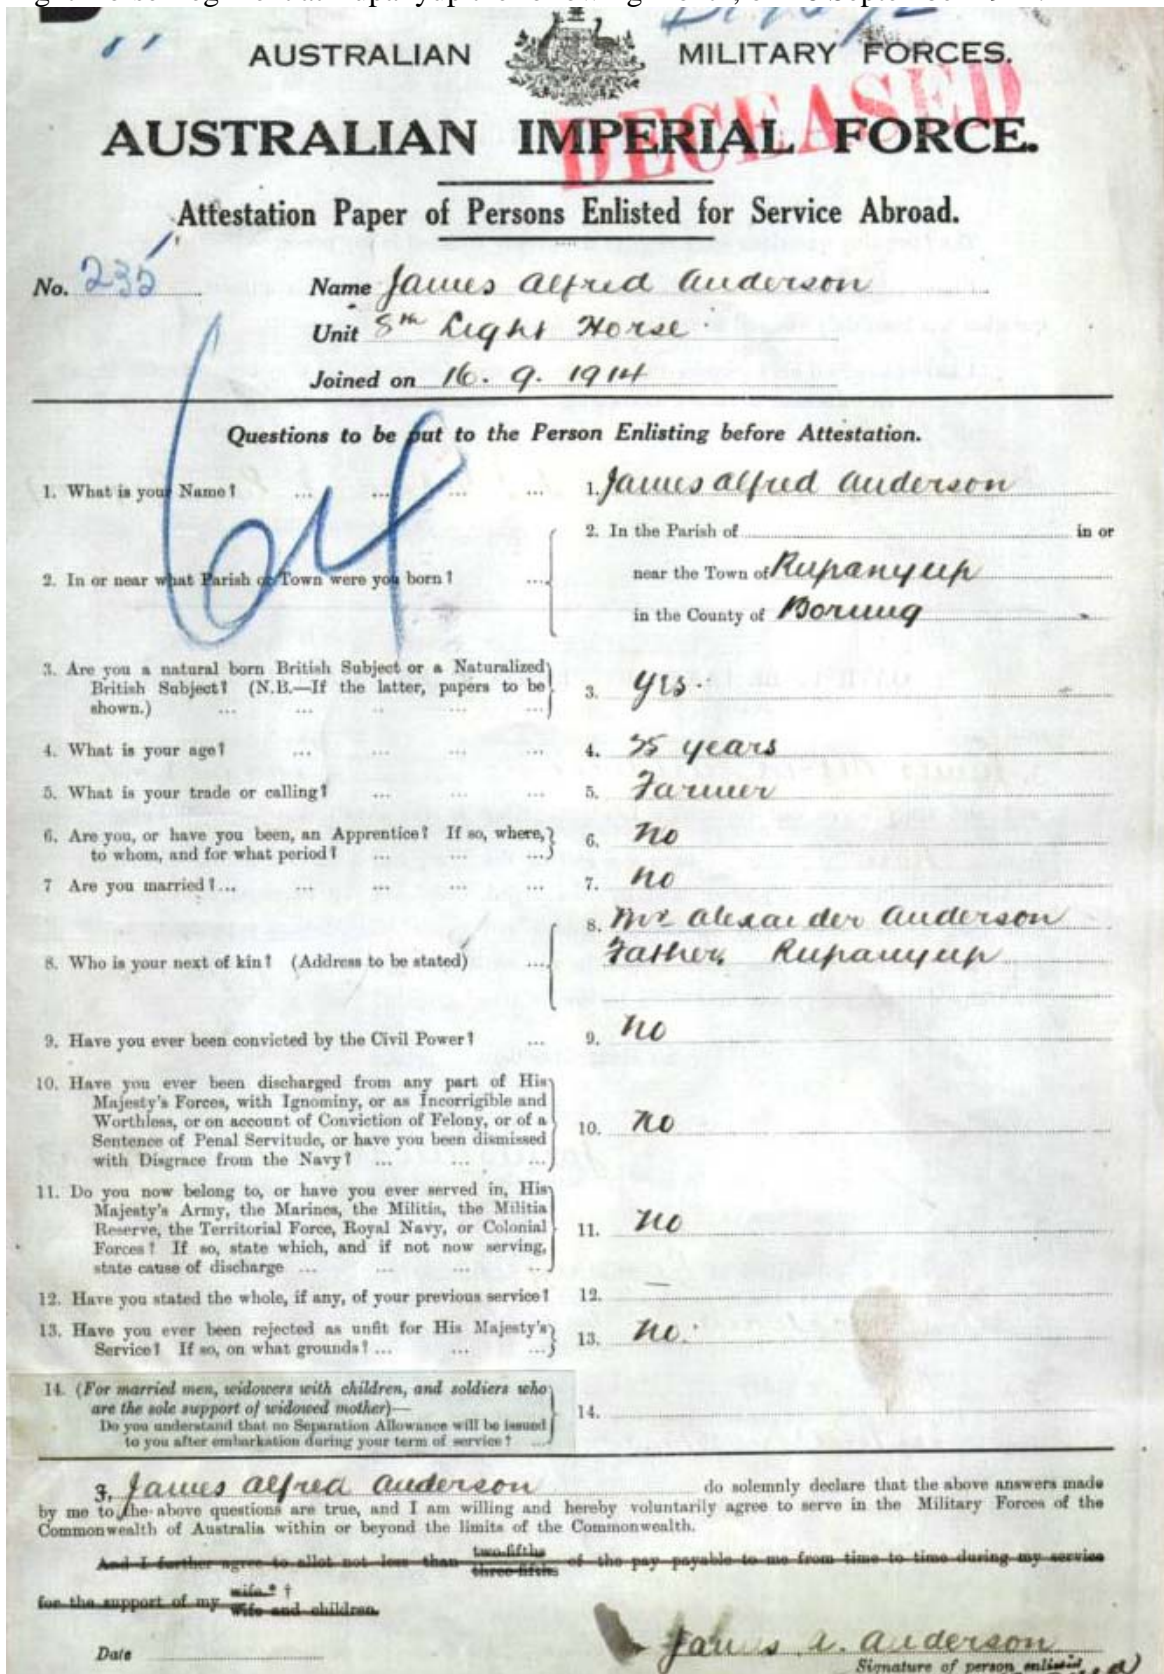 AUSTRALIAN MILITARY FORCES.
DECEASED
AUSTRALIAN IMPERIAL FORCE.
Attestation Paper of Persons Enlisted for Service Abroad.
No. 235 Name James Alfred Anderson
Unit 8th Light Horse
Joined on 16. 9. 1914
64
Questions to be put to the Person Enlisting before Attestation.
1. What is your Name? ... ... ... ... 1. James Alfred Anderson
2. In the Parish of in or
2. In or near what Parish or Town were you born? ... near the Town of Rupanyup
in the County of Borung
3. Are you a natural born British Subject or a Naturalized
British Subject? (N.B.—If the latter, papers to be 3. Yes.
shown.) ... ... ... ... ...
4. What is your age? ... ... ... ... 4. 25 years
5. What is your trade or calling? ... ... ... 5. Farmer
6. Are you, or have you been, an Apprentice? If so, where, 6. No
to whom, and for what period? ... ... ...
7 Are you married?... ... ... ... ... 7. No
8. Mr Alexander Anderson
8. Who is your next of kin? (Address to be stated) ... Father, Rupanyup
9. Have you ever been convicted by the Civil Power? ... 9. No
10. Have you ever been discharged from any part of His
Majesty's Forces, with Ignominy, or as Incorrigible and
Worthless, or on account of Conviction of Felony, or of a
Sentence of Penal Servitude, or have you been dismissed 10. No
with Disgrace from the Navy? ... ... ...
11. Do you now belong to, or have you ever served in, His
Majesty's Army, the Marines, the Militia, the Militia
Reserve, the Territorial Force, Royal Navy, or Colonial 11. No
Forces? If so, state which, and if not now serving,
state cause of discharge ... ... ... ...
12. Have you stated the whole, if any, of your previous service? 12. —
13. Have you ever been rejected as unfit for His Majesty's 13. No.
Service? If so, on what grounds? ... ... ...
14. (For married men, widowers with children, and soldiers who
are the sole support of widowed mother)—
Do you understand that no Separation Allowance will be issued 14.
to you after embarkation during your term of service? ...
I, James Alfred Anderson do solemnly declare that the above answers made
by me to the above questions are true, and I am willing and hereby voluntarily agree to serve in the Military Forces of the
Commonwealth of Australia within or beyond the limits of the Commonwealth.
And I further agree to allot not less than two-fifths three-fifths of the pay payable to me from time to time during my service
for the support of my wife.* † wife and children.
Date James A. Anderson
Signature of person enlisted.